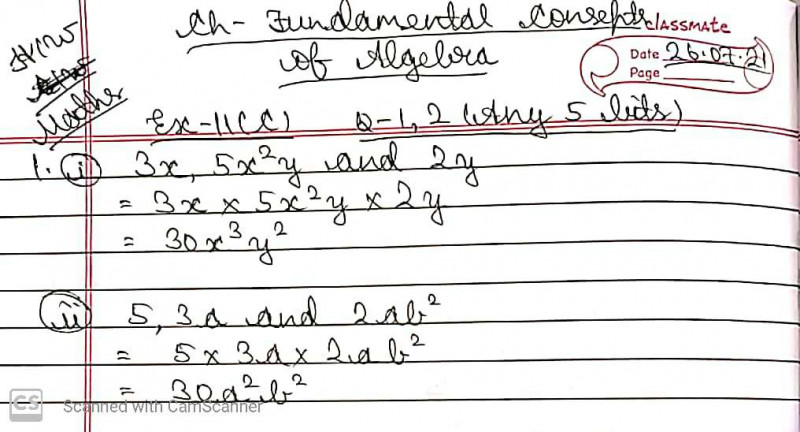 Ch- Fundamental Consepts
of Algebra
classmate
Date 26.07.21
Page
H/W
Maths
Ex-11(C) Q-1, 2 (Any 5 bits)
1. (i) 3x, 5x²y and 2y
= 3x × 5x²y × 2y
= 30x³y²
(ii) 5, 3a and 2ab²
= 5 × 3a × 2ab²
= 30a²b²
CS Scanned with CamScanner